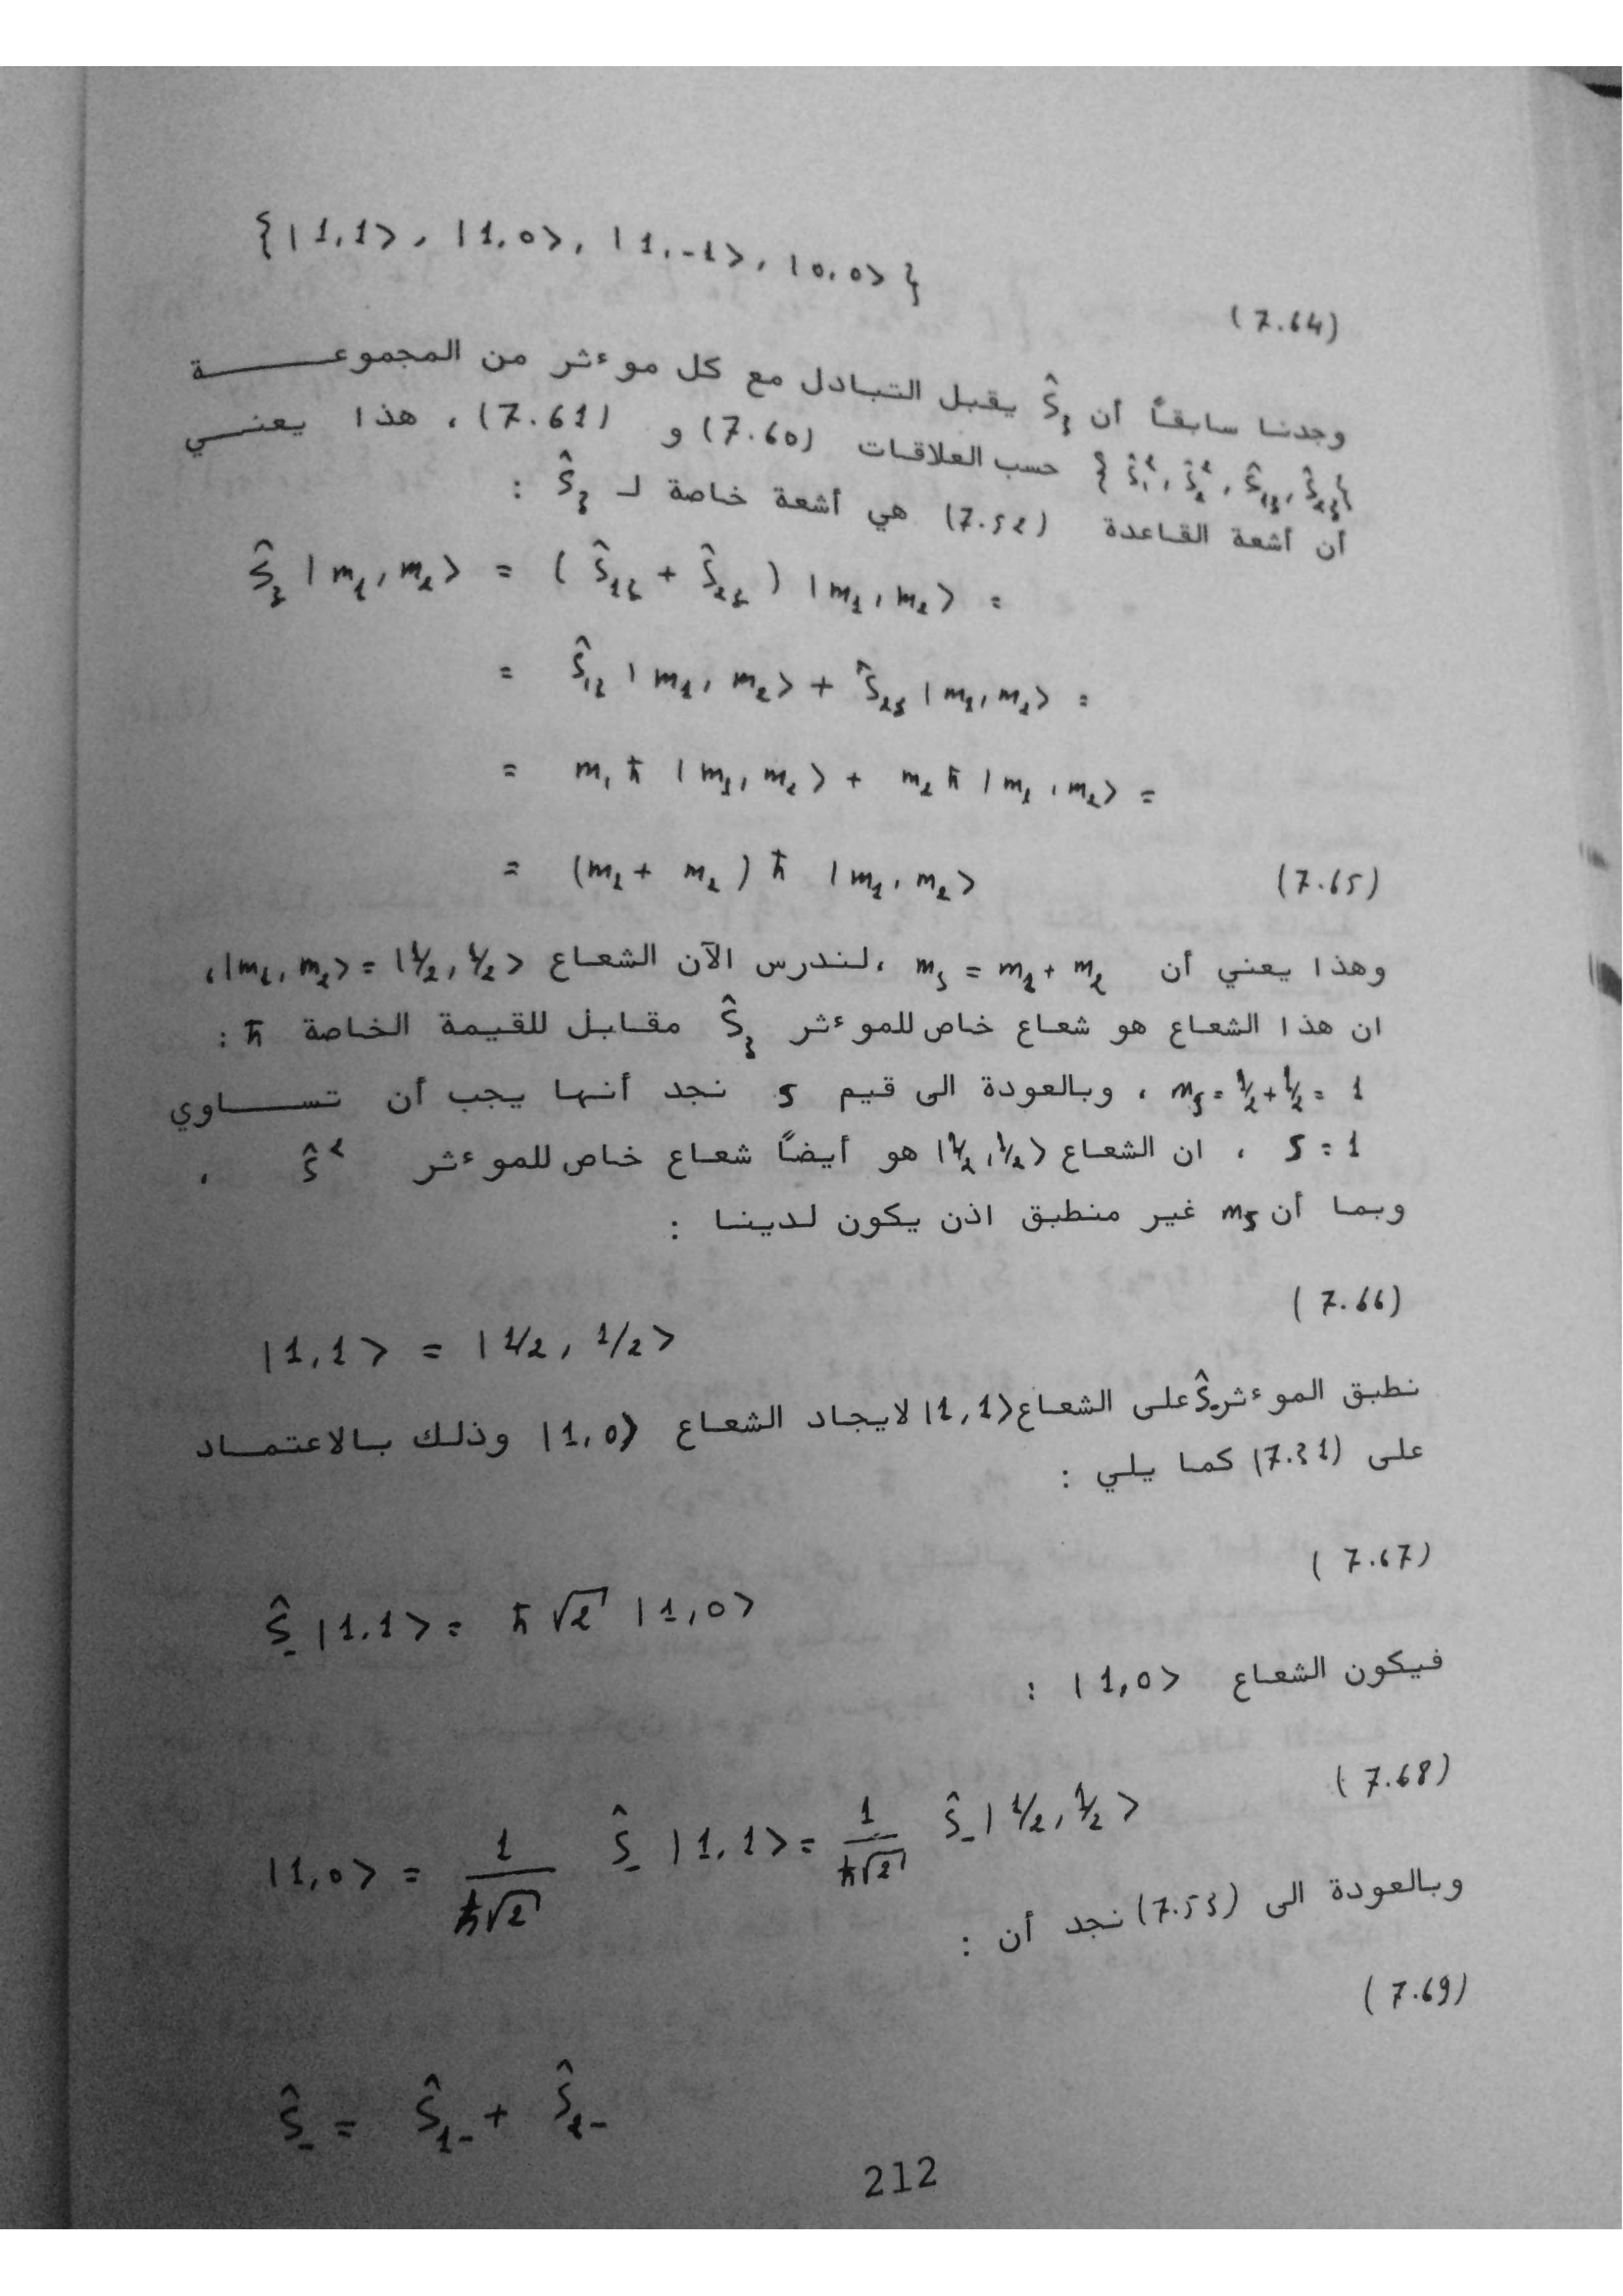 {|1,1>, |1,0>, |1,-1>, |0,0>}
(7.64)
وجدنا سابقاً أن Ŝ_z يقبل التبادل مع كل موءثر من المجموعة
{Ŝ₁², Ŝ₂², Ŝ₁z, Ŝ₂z} حسب العلاقات (7.60) و (7.61)، هذا يعني
أن أشعة القاعدة (7.52) هي أشعة خاصة لـ Ŝ_z :
Ŝ_z |m₁, m₂> = (Ŝ₁z + Ŝ₂z) |m₁, m₂> =
= Ŝ₁z |m₁, m₂> + Ŝ₂z |m₁, m₂> =
= m₁ ħ |m₁, m₂> + m₂ ħ |m₁, m₂> =
= (m₁ + m₂) ħ |m₁, m₂> (7.65)
وهذا يعني أن m_s = m₁ + m₂ ،لندرس الآن الشعاع |m₁, m₂> = |1/2, 1/2>،
ان هذا الشعاع هو شعاع خاص للموءثر Ŝ_z مقابل للقيمة الخاصة ħ :
m_s = 1/2 + 1/2 = 1 ، وبالعودة الى قيم s نجد أنها يجب أن تساوي
s = 1 ، ان الشعاع |1/2, 1/2> هو أيضاً شعاع خاص للموءثر Ŝ² ،
وبما أن m_s غير منطبق اذن يكون لدينا :
(7.66)
|1,1> = |1/2, 1/2>
نطبق الموءثر Ŝ₋ على الشعاع |1,1> لايجاد الشعاع |1,0> وذلك بالاعتماد
على (7.31) كما يلي :
(7.67)
Ŝ₋ |1,1> = ħ √2 |1,0>
فيكون الشعاع |1,0> :
(7.68)
|1,0> = 1/(ħ√2) Ŝ₋ |1,1> = 1/(ħ√2) Ŝ₋ |1/2, 1/2>
وبالعودة الى (7.53) نجد أن :
(7.69)
Ŝ₋ = Ŝ₁₋ + Ŝ₂₋
212